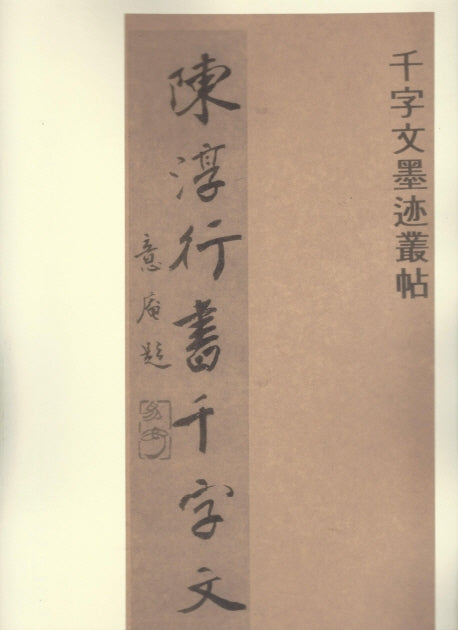 千字文墨迹叢帖
陳淳行書千字文
意庵題